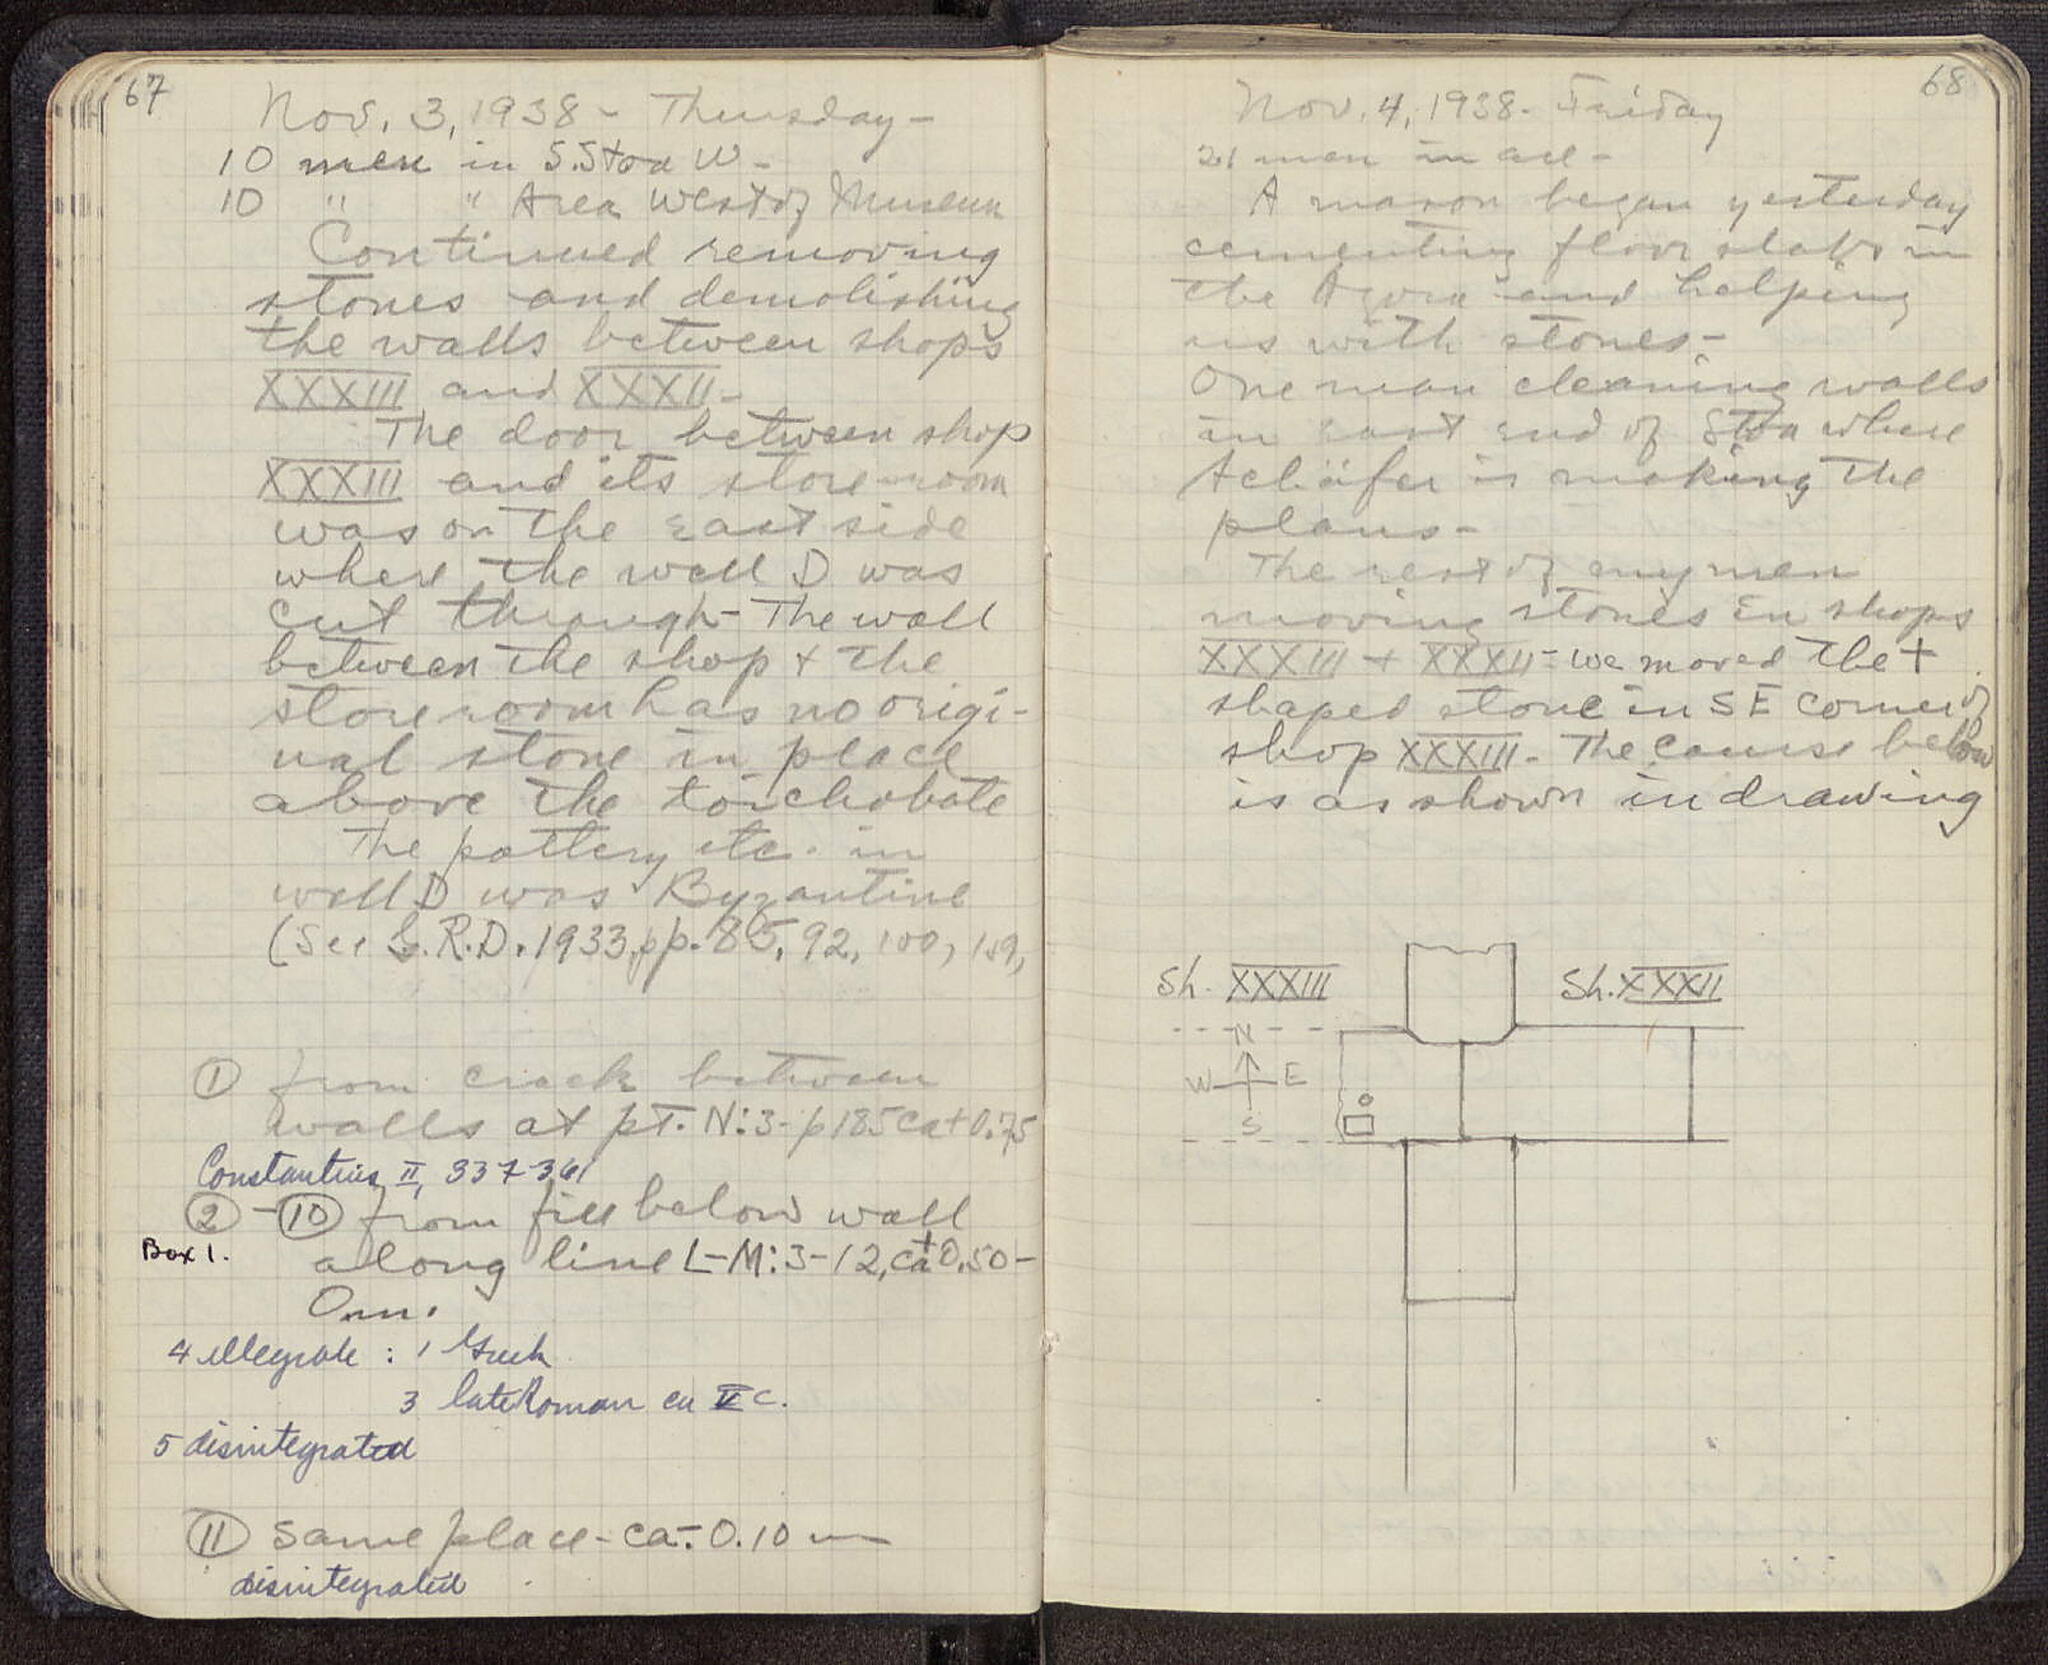 67
Nov. 3, 1938 - Thursday -
10 men in S. Stoa W -
10 " " Area West of Museum
Continued removing
stones and demolishing
the walls between shops
XXXIII and XXXII -
The door between shop
XXXIII and its store-room
was on the east side
where the well D was
cut through - The wall
between the shop + the
storeroom has no origi-
nal stone in place
above the toichobate
The pottery etc. in
well D was Byzantine
(See G.R.D. 1933, pp. 85, 92, 100, 109,
① from crack between
walls at pt. N:3 - p 185 ca + 0.75
Constantius II, 337-361
② - ⑩ from fill below wall
Box 1.
along line L-M:3-12, ca + 0.50 -
0 m.
4 illegible : 1 Greek
3 late Roman ca V c.
5 disintegrated
⑪ Same place - ca. - 0.10 m
disintegrated
68
Nov. 4, 1938 - Friday
21 men in all -
A mason began yesterday
cementing floor slabs in
the Agora and helping
us with stones -
One man cleaning walls
in east end of Stoa where
Schäfer is making the
plans -
The rest of my men
moving stones in shops
XXXIII + XXXII - we moved the +
shaped stone in SE corner of
shop XXXIII - The course below
is as shown in drawing
Sh. XXXIII
Sh. XXXII
N
W E
S